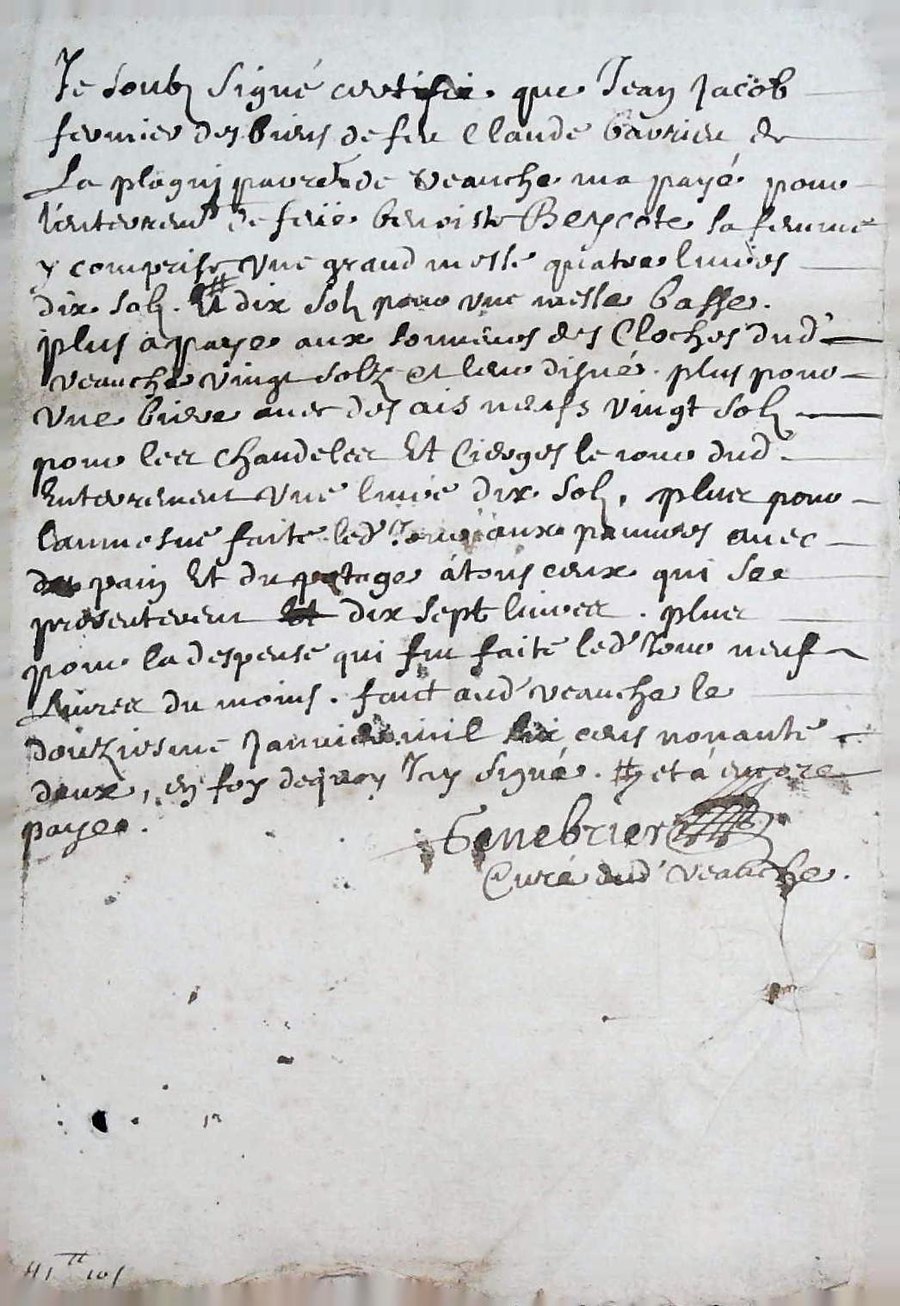 Je soubz signé certifie que Jean Jacob
fermier des biens de feu Claude barrieu de
La plagni parre de veauche ma payé pour
l'enterremt de feüe benoiste la femme
y comprise une grand messe quatre livres
dix solz. # Et dix solz pour une messe basse.
plus a paye aux sonneurs des Cloches dud
veauche vingt solz et leur disné. plus pour
une biere avec des ais neufs vingt solz
pour les chandeles Et Cierges le jour dud
Enterrement une livre dix solz, plus pour
l'aumosne faite led Jour aux pauvres avec
du pain Et du potage à tous ceux qui se
presenterent dix sept livres. plus
pour la despense qui fut faite led Jour neuf
Livres du moins. fait aud veauche le
douziesme Janvier mil six cens nonante
deux, en foy dequoy J'ay signé. # et à encore
payer.
Genebrier
Curé dud veauche.
41 tt 10 s